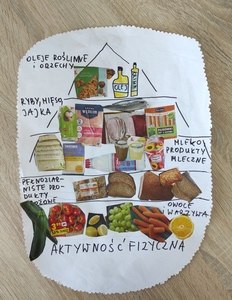 OLEJE ROŚLINNE
I ORZECHY
OLEJ
RYBY, MIĘSO,
JAJKA
MLEKO
PRODUKTY
MLECZNE
PEŁNOZIAR-
NISTE PRO-
DUKTY
ZBOŻOWE
OWOCE
I WARZYWA
AKTYWNOŚĆ FIZYCZNA